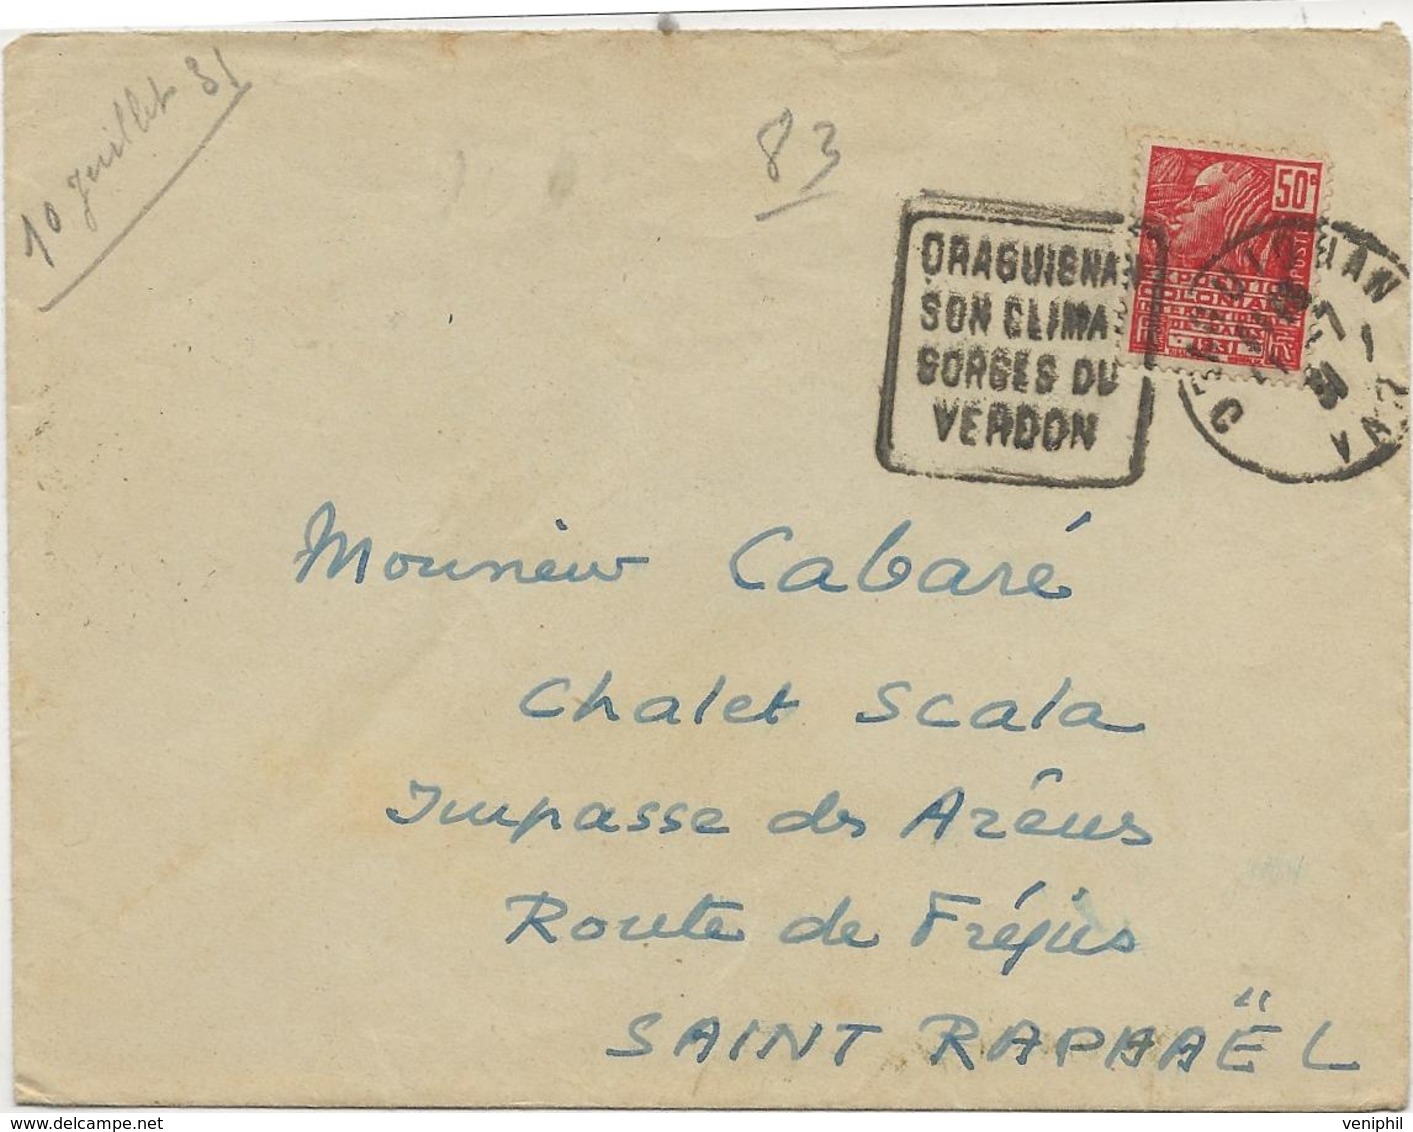 10 juillet 31
83
50c
POSTES
EXPOSITION
COLONIALE
INTERNATIONALE
DE PARIS
1931
DRAGUIGNAN
SON CLIMAT
GORGES DU
VERDON
DRAGUIGNAN
VAR
Monsieur Cabaré
Chalet Scala
Impasse des Arènes
Route de Fréjus
SAINT RAPHAËL
delcampe.net
veniphil